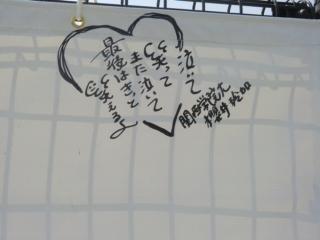 泣いて
笑って
また泣いて
最後はきっと
笑える
関西学院大